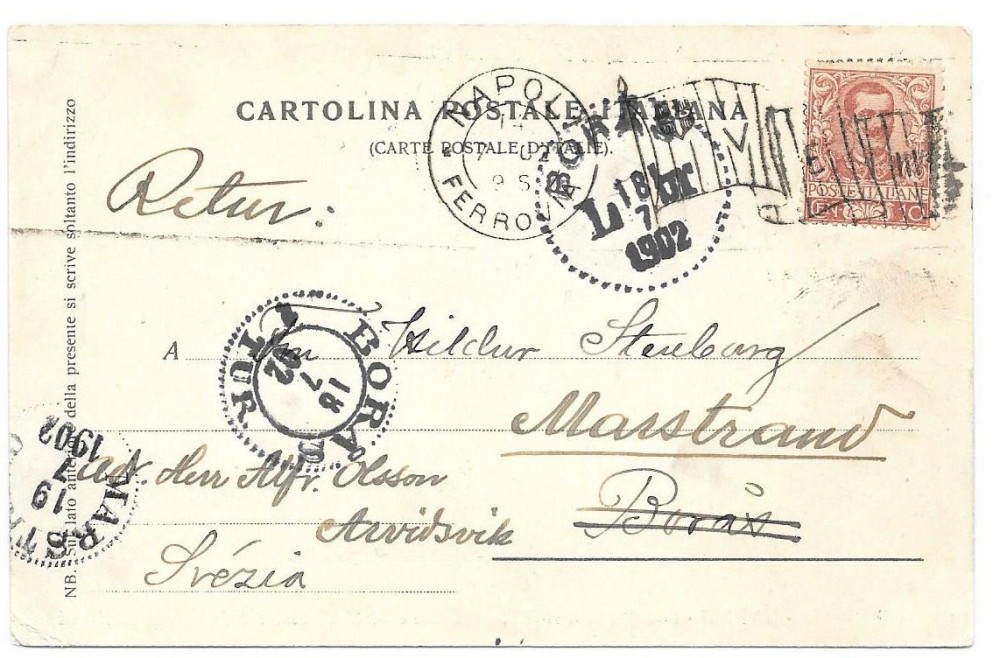 CARTOLINA POSTALE ITALIANA
(CARTE POSTALE D'ITALIE).
NAPOLI
FERROVIA
9 S
BORÅS
LBR
18
7
1902
POSTE ITALIANE
Retur:
A
Hildur Stenborg
Marstrand
Adr. Herr Alfr. Olsson
Borås
Arvidsvik
Svézia
BORÅS
TUR
18
7
02
MARST
19
7
1902
NB. Sul lato anteriore della presente si scrive soltanto l'indirizzo